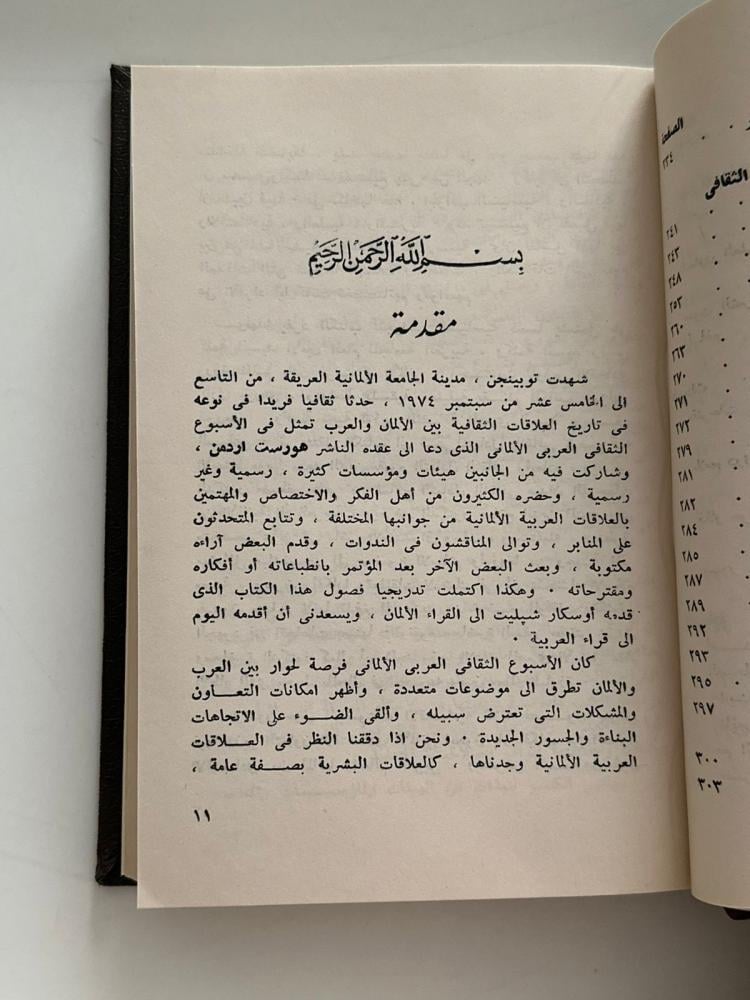 بسم الله الرحمن الرحيم
مقدمة
شهدت توبينجن ، مدينة الجامعة الألمانية العريقة ، من التاسع
الى الخامس عشر من سبتمبر ١٩٧٤ ، حدثا ثقافيا فريدا فى نوعه
فى تاريخ العلاقات الثقافية بين الألمان والعرب تمثل فى الأسبوع
الثقافى العربى الألمانى الذى دعا الى عقده الناشر هورست اردمن ،
وشاركت فيه من الجانبين هيئات ومؤسسات كثيرة ، رسمية وغير
رسمية ، وحضره الكثيرون من أهل الفكر والاختصاص والمهتمين
بالعلاقات العربية الألمانية من جوانبها المختلفة ، وتتابع المتحدثون
على المنابر ، وتوالى المناقشون فى الندوات ، وقدم البعض آراءه
مكتوبة ، وبعث البعض الآخر بعد المؤتمر بانطباعاته أو أفكاره
ومقترحاته ٠ وهكذا اكتملت تدريجيا فصول هذا الكتاب الذى
قدمه أوسكار شپليت الى القراء الألمان ، ويسعدنى أن أقدمه اليوم
الى قراء العربية ٠
كان الأسبوع الثقافى العربى الألمانى فرصة لحوار بين العرب
والألمان تطرق الى موضوعات متعددة ، وأظهر امكانات التعــاون
والمشكلات التى تعترض سبيله ، وألقى الضــوء على الاتجاهات
البناءة والجسور الجديدة ٠ ونحن اذا دققنا النظر فى العــلاقات
العربية الألمانية وجدناها ، كالعلاقات البشرية بصــفة عامة ،
١١
الصفحة
٢٣٤
الثقافى
٢٤١
٢٤٣
٢٤٨
٢٥٣
٢٦٠
٢٦٣
٢٧٠
٢٧١
٢٧٢
٢٧٩
٢٨١
٢٨٢
٢٨٤
٢٨٥
٢٨٧
٢٨٩
٢٩٢
٢٩٣
٢٩٥
٢٩٧
٣٠٠
٣٠٣